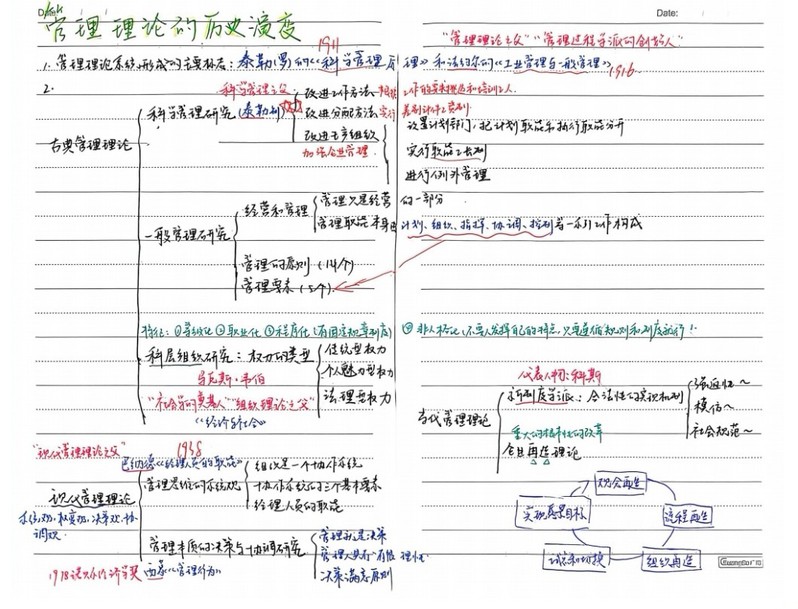 Date:
管理理论的历史演变
1911
"管理理论之父" "管理过程学派的创始人"
1. 管理理论系统形成的主要标志：泰勒(罗)的《科学管理原理》和法约尔的《工业管理与一般管理》
1916
2.
古典管理理论
科学管理之父
科学管理研究(泰勒制)
改进工作方法，根据工作的要求挑选和培训工人
改进分配方法，实行差别计件工资制
改进生产组织
加强企业管理
设置计划部门，把计划职能和执行职能分开
实行职能工长制
进行例外管理
一般管理研究
经营和管理
管理只是经营的一部分
管理职能本身由计划、组织、指挥、协调、控制等一系列工作构成
管理的原则(14个)
管理要素(5个)
特征：①等级化 ②职业化 ③程序化(有固定规章制度)
④非人格化
科层组织研究：权力的类型
传统型权力
个人魅力型权力
法理型权力
马克斯·韦伯
"社会学的奠基人" "组织理论之父"
《经济与社会》
代表人物：科斯
当代管理理论
新制度学派：合法性的实现机制
强迫性～
模仿～
社会规范～
重大的根本性的改革
企业再造理论
观念再造
流程再造
组织再造
试点和切换
实现愿景目标
"现代管理理论之父"
1938
巴纳德《经理人员的职能》
现代管理理论
系统观、权变观、决策观、协调观
管理思维的系统观
组织是一个协作系统
协作系统的三个基本要素
经理人员的职能
管理本质的决策与协调研究
管理就是决策
决策满意原则
1978诺贝尔经济学奖
西蒙《管理行为》
Date:
Guangbo 广博